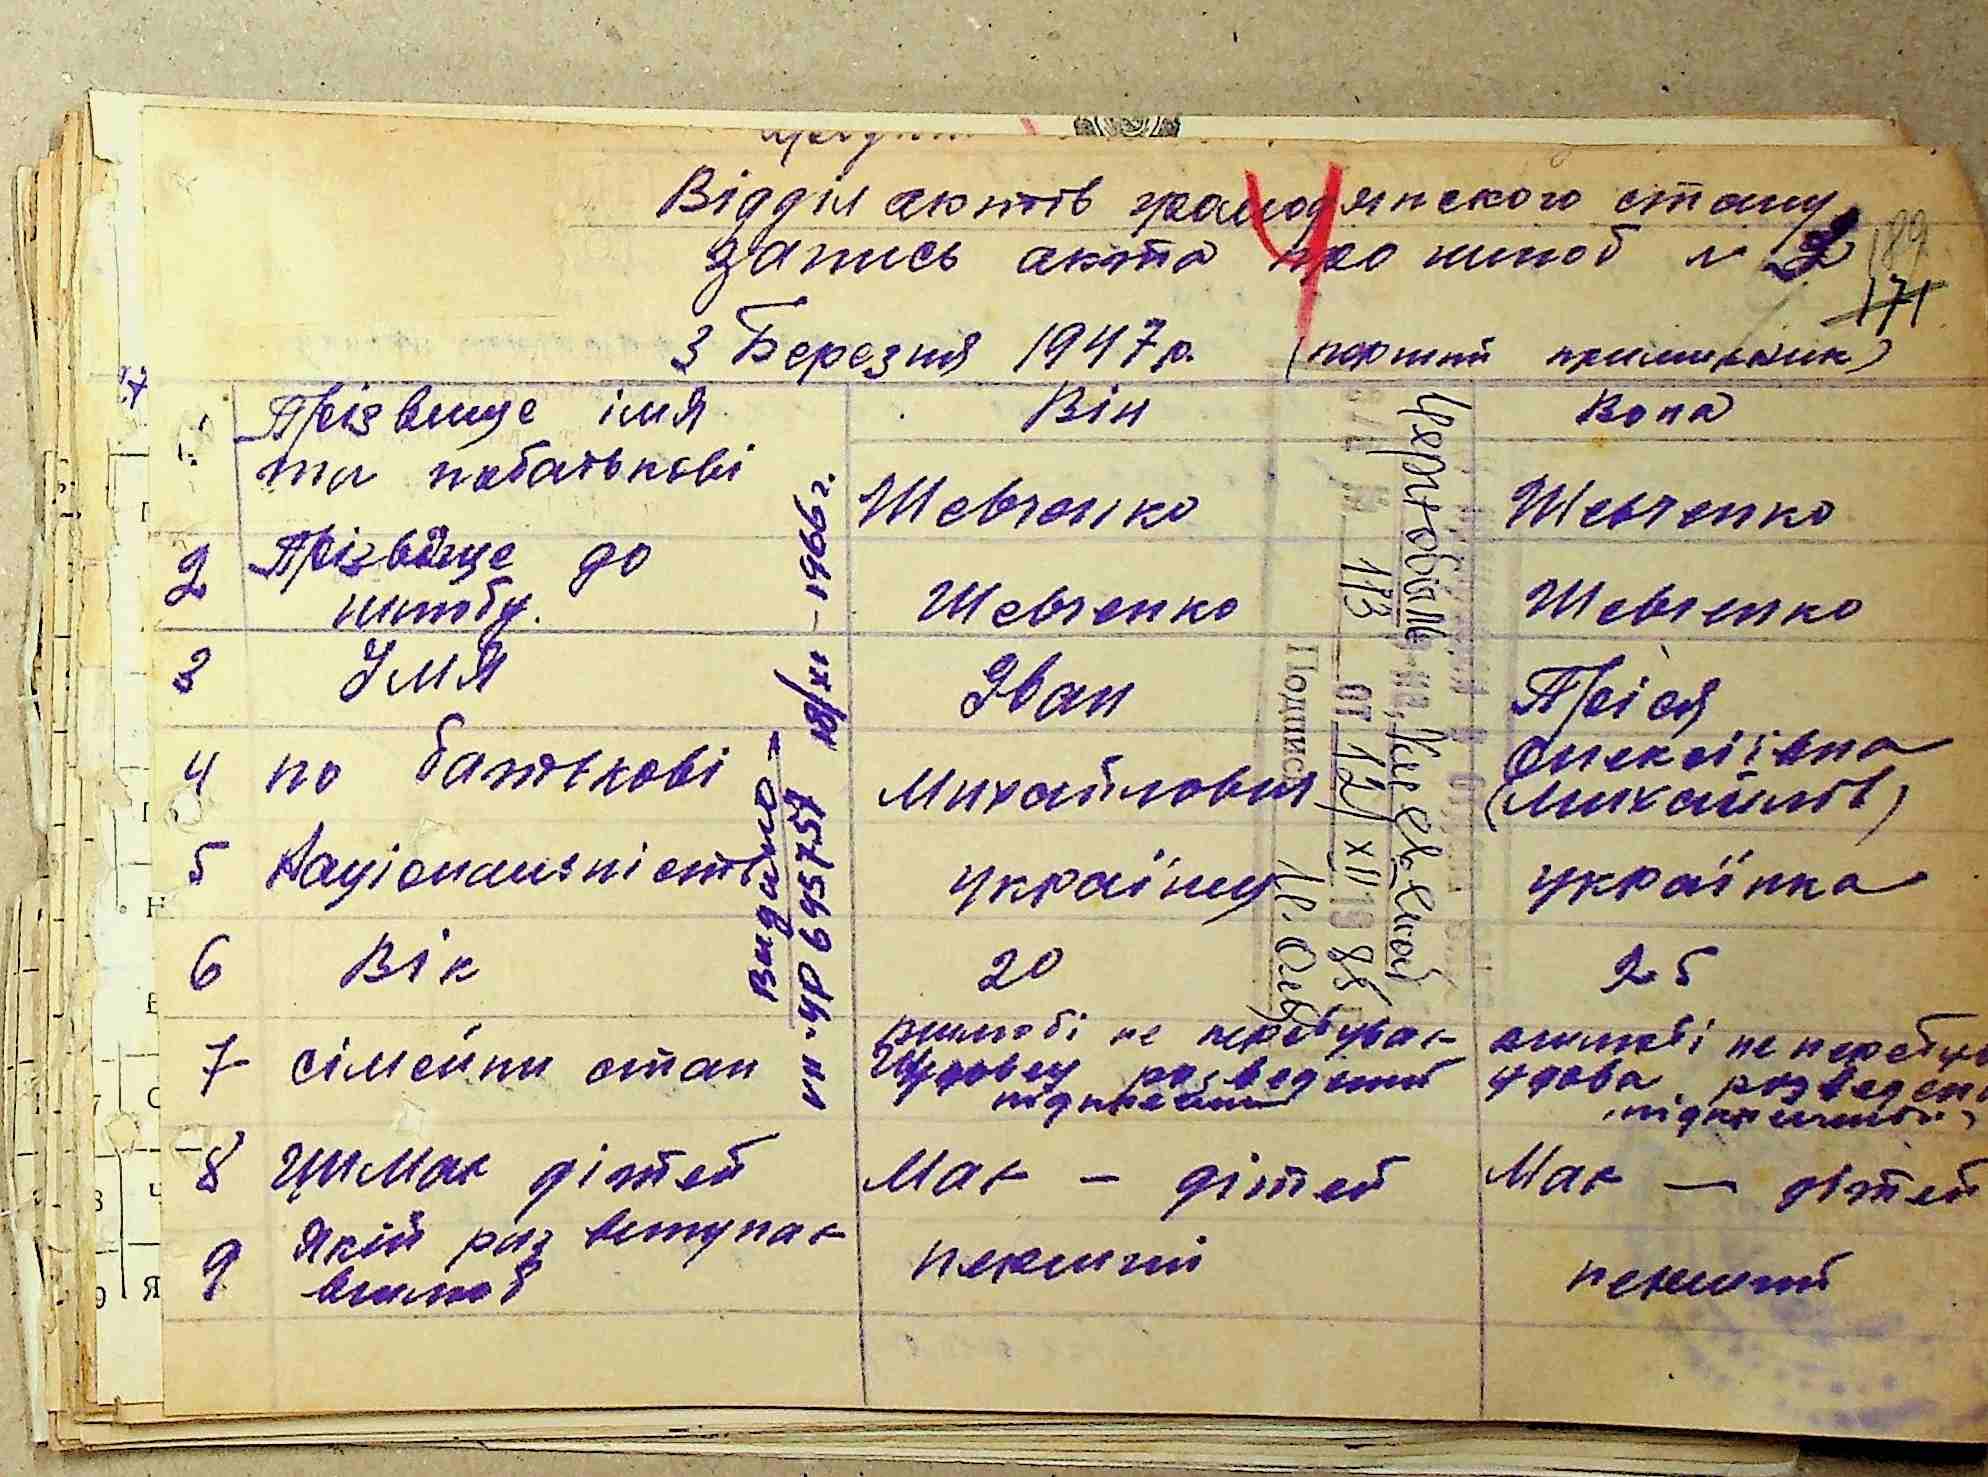 Відділ актів громодянського стану
запись акта про шлюб № 2
189
171
3 Березня 1947 р. (перший примирник)
1. Прізвище імя та побатькові
Він
Вона
Шевченко
Шевченко
2 Прізвище до шлюбу.
Шевченко
Шевченко
3 Имя
Іван
Пріся
4 по батькові
Михайлович
Олексіївна
(Михайлів)
5 Національність
українец
українка
6 Вік
20
25
7 сімейни стан
вшлюбі не перебував
Удовец розведений
підкреслити
вшлюбі не перебув
удова розведен
підкреслити
8 ЧиМає дітей
Має — дітей
Має — дітей
9 Якій раз вступає
вшлюб
перший
перший
Видано —
УР 695757 18/XI - 1966 г.
Чернобыль р-на, Киевской
№ 113 от 12/XII 1985
Подпись